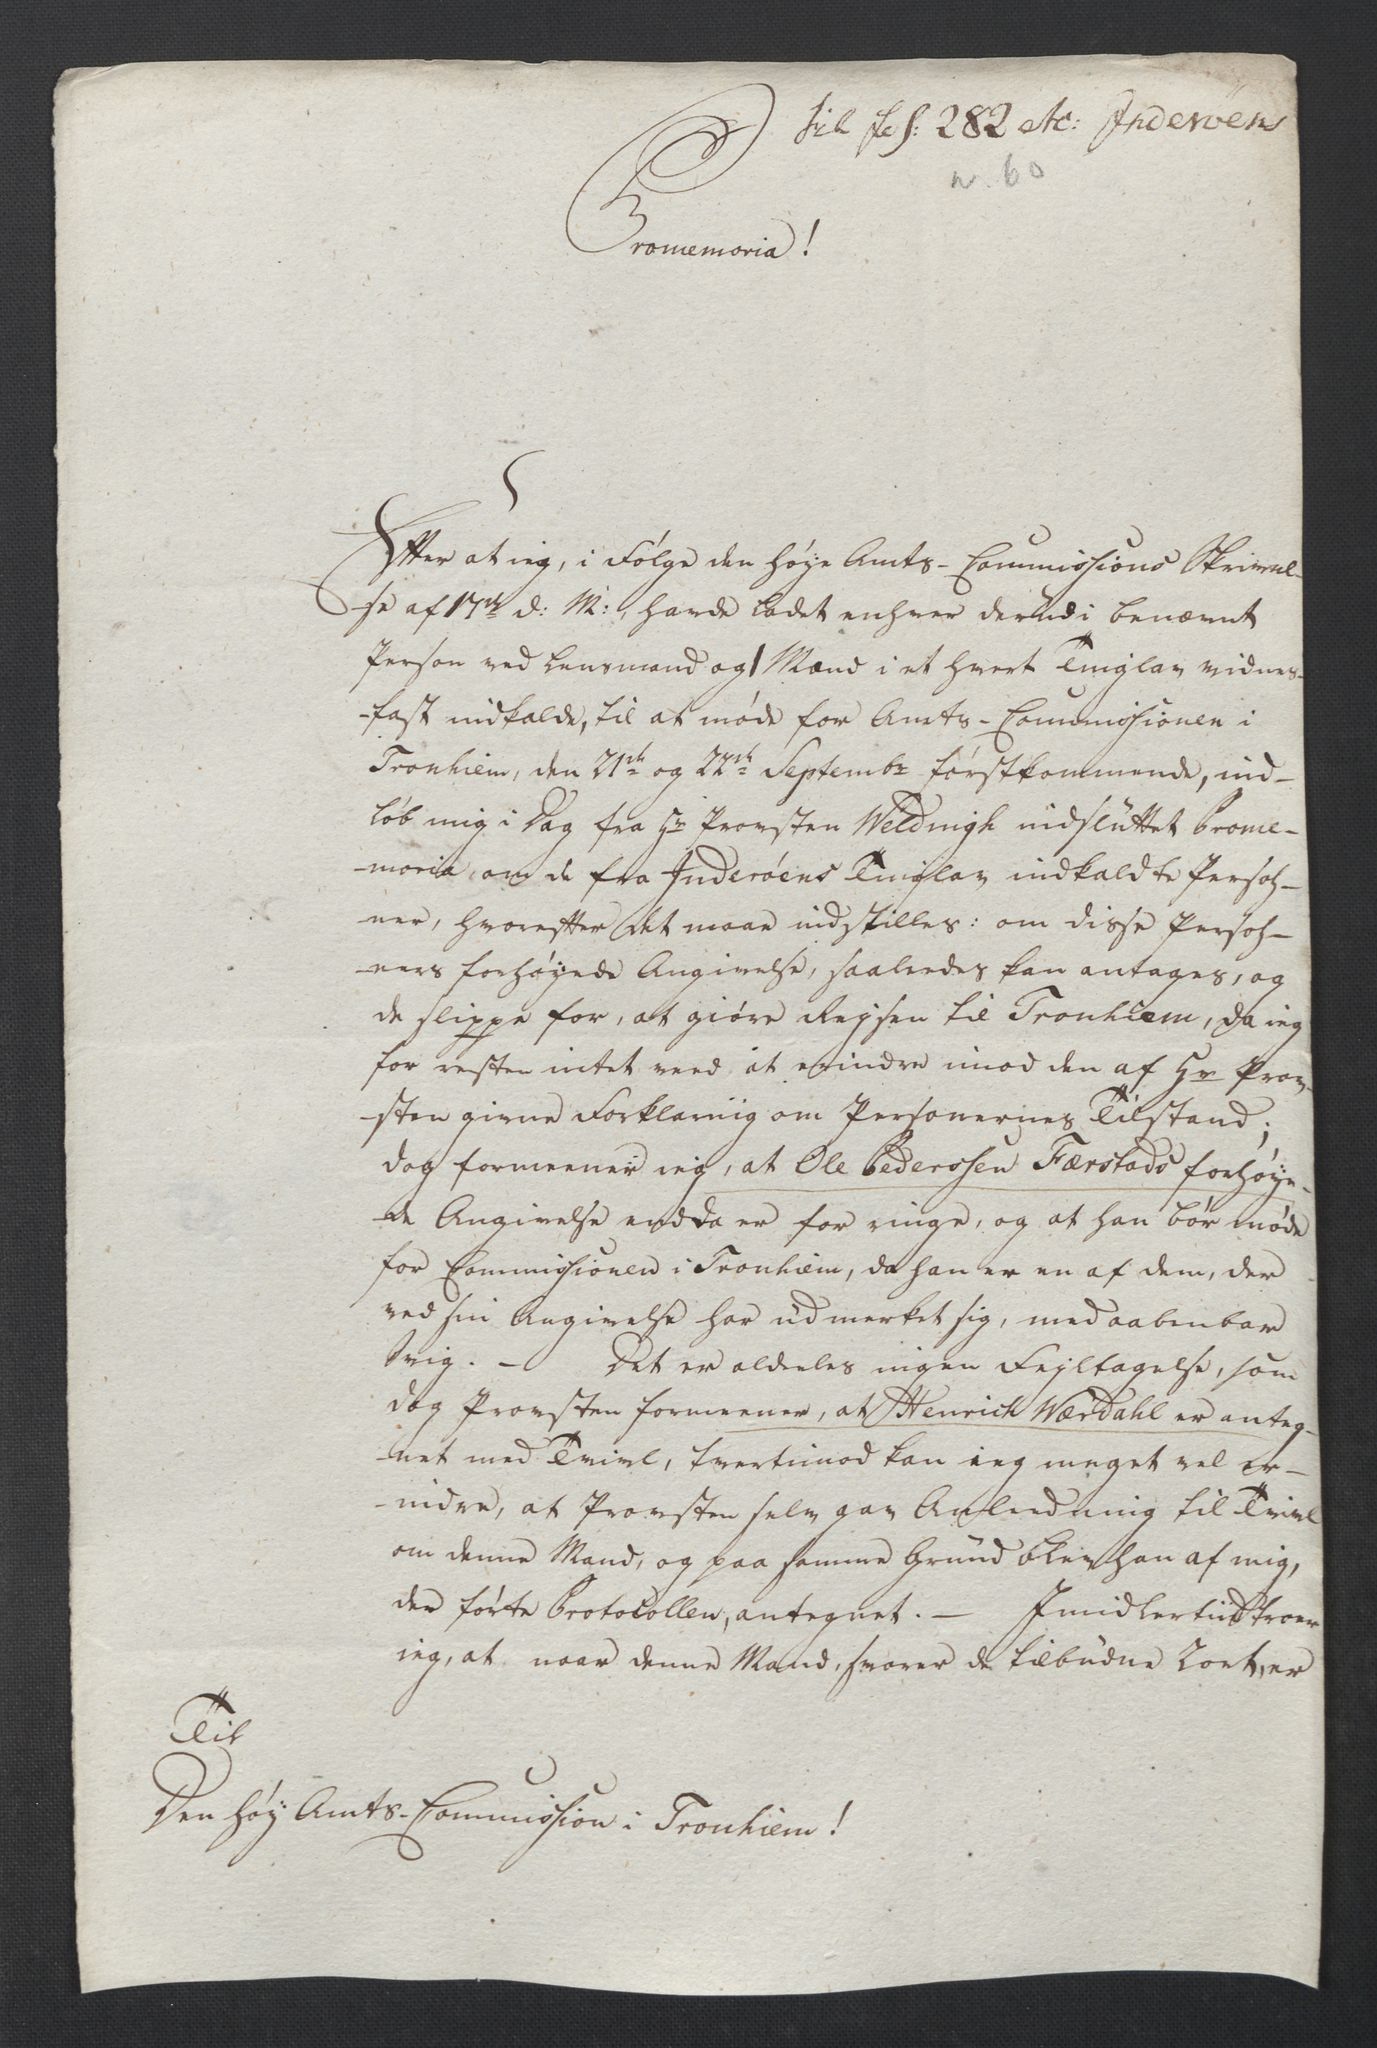 til fol: 282 etc: Inderøens
n. 60
Promemoria!
Efter at ieg, i Følge den høye Amts-Commissions Skrivel-
-se af 17de d: M:, havde ladet enhver derudi benævnt
Person ved Lensmand og 1 Mand i et hvert Tinglav vidnes-
-fast indkalde, til at møde for Amts-Commissionen i
Tronhiem, den 21de og 22de Septembr førstkommende, ind-
løb mig i Dag fra Hr Provsten Weldingh indsluttet Prome-
-moria, om de fra Inderøens Tinglav indkaldte Persoh-
ner, hvorefter det maae indstilles: om disse Persoh-
-ners forhøyede Angivelse, saaleedes kan antages, og
de slippe for, at giøre Reysen til Tronhiem, da ieg
for resten intet veed at erindre imod den af Hr Prov-
-sten givne Forklaring om Personernes Tilstand;
dog formeener ieg, at Ole Pederssen Færstads forhøye-
-de Angivelse endda er for ringe, og at han bør møde
for Commissionen i Tronhiem, da han er en af dem, der
ved sin Angivelse har udmerket sig, med aabenbar
Svig. — Det er aldeeles ingen Fejltagelse, som
dog Provsten formeener, at Henrich Werdahl er anteg-
-net med Tvivl, tvertimod kan ieg meget vel er-
-indre, at Provsten selv gav Anleedning til Tvivl
om denne Mand, og paa samme Grund blev han af mig,
der førte Protocollen, antegnet. — Imidlertiid troer
ieg, at naar denne Mand, svarer de tilbudne 2 ort, er
Til
Den høy Amts-Commission i Tronhiem!